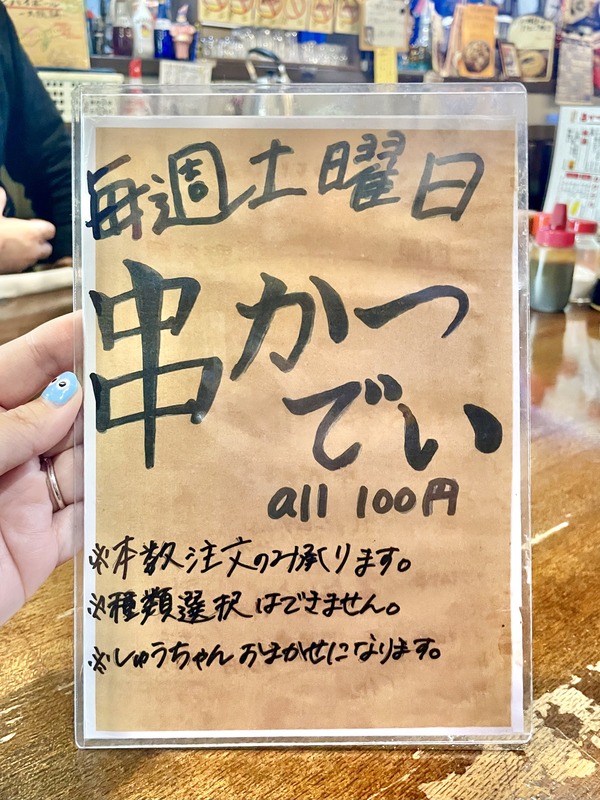 毎週土曜日
串かつ
でい
all 100円
※本数注文のみ承ります。
※種類選択はできません。
※しゅうちゃんおまかせになります。